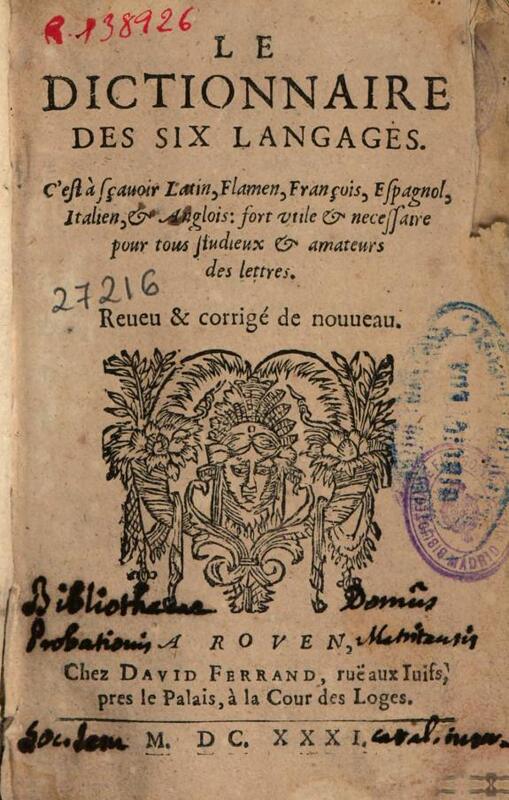 R.138926
LE
DICTIONNAIRE
DES SIX LANGAGES.
C'est à sçauoir Latin, Flamen, François, Espagnol,
Italien, & Anglois: fort vtile & necessaire
pour tous studieux & amateurs
des lettres.
27216
Reueu & corrigé de nouueau.
Bibliothecae Domûs
Probationis A ROVEN, Matritensis
Chez DAVID FERRAND, ruë aux Iuifs,
pres le Palais, à la Cour des Loges.
M. DC. XXXI.
MADRID